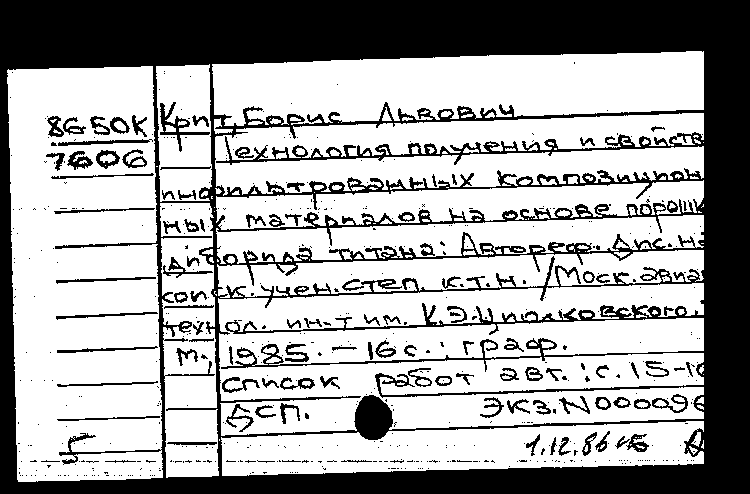 8G50K Крит, Борис Львович
7606 Технология получения и свойств
инфильтрованных композицион
ных материалов на основе порошк
диборида титана: Автореф. Дис. на
соиск. учен. степ. к.т.н. / Моск. авиа
технол. ин-т им. К.Э. Циолковского.
М., 1985. - 16 с.: граф.
список работ авт.: с. 15-16
ДСП. Экз. N 000096
5 1.12.86